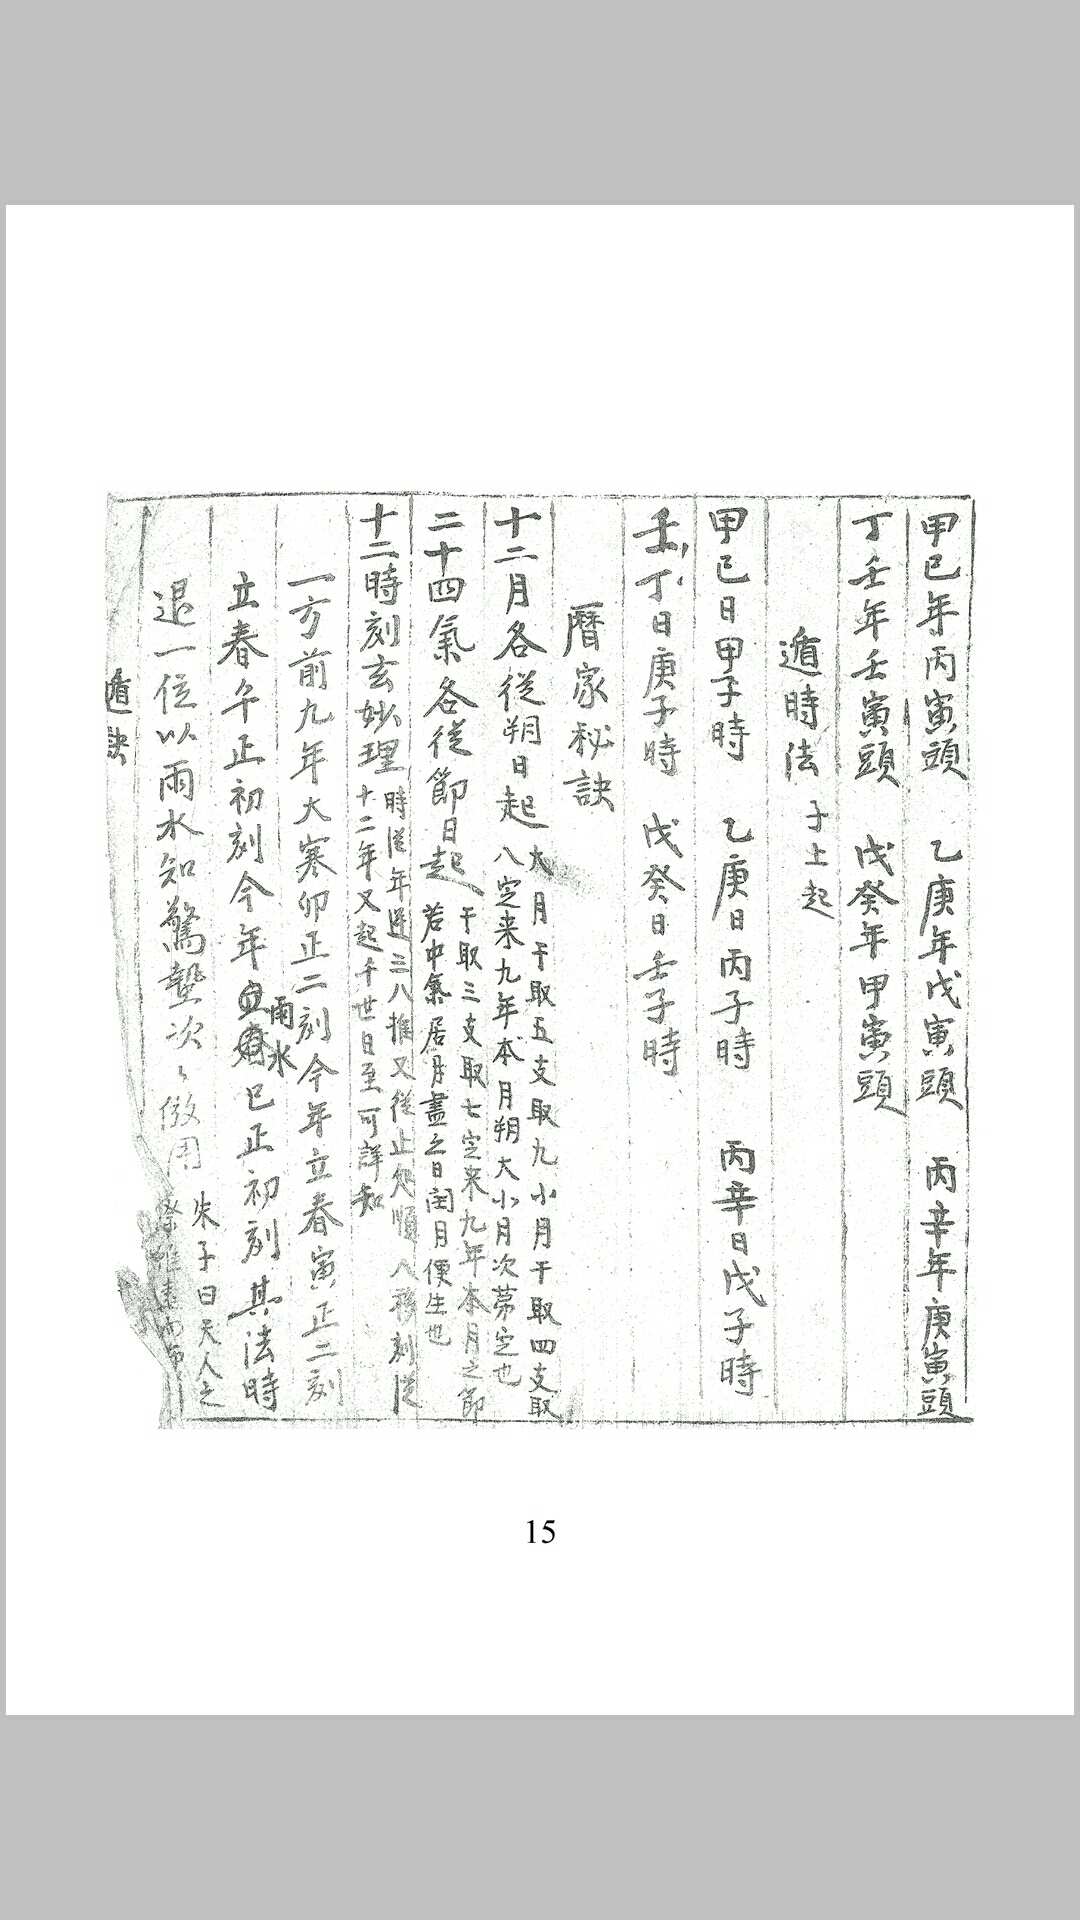 甲己年丙寅頭 乙庚年戊寅頭 丙辛年庚寅頭
丁壬年壬寅頭 戊癸年甲寅頭
遁時法 子上起
甲己日甲子時 乙庚日丙子時 丙辛日戊子時
壬丁日庚子時 戊癸日壬子時
曆家秘訣
十二月各從朔日起 大月干取五支取九小月干取四支取
八定来九年本月朔大小月次第定也
二十四氣各從節日起 干取三支取七定来九年本月之節
若中氣居月盡之日閏月便生也
十二時刻玄妙理 時從年逆三八推又從止処順八移刻從
十二年又起千世日至可詳知
一方前九年大寒卯正二刻今年立春寅正二刻
立春午正初刻今年雨水巳正初刻其法時
退一位以雨水知驚蟄次々倣用 朱子曰天人之
遁訣
15